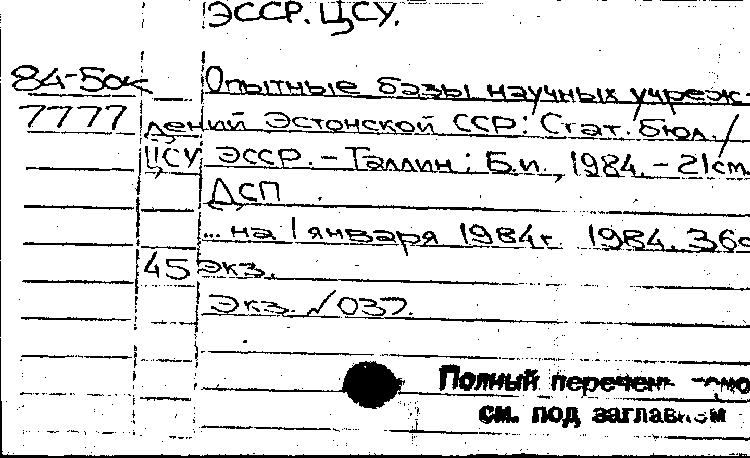 ЭССР. ЦСУ.
84-5ок Опытные базы научных учреж-
7777 дений Эстонской ССР: Стат. бюл./
ЦСУ ЭССР. - Таллин: Б.и., 1984. - 21 см.
ДСП
... на 1 января 1984 г. 1984. 36с
45 экз.
Экз. №037.
Полный перечень
см. под заглавием